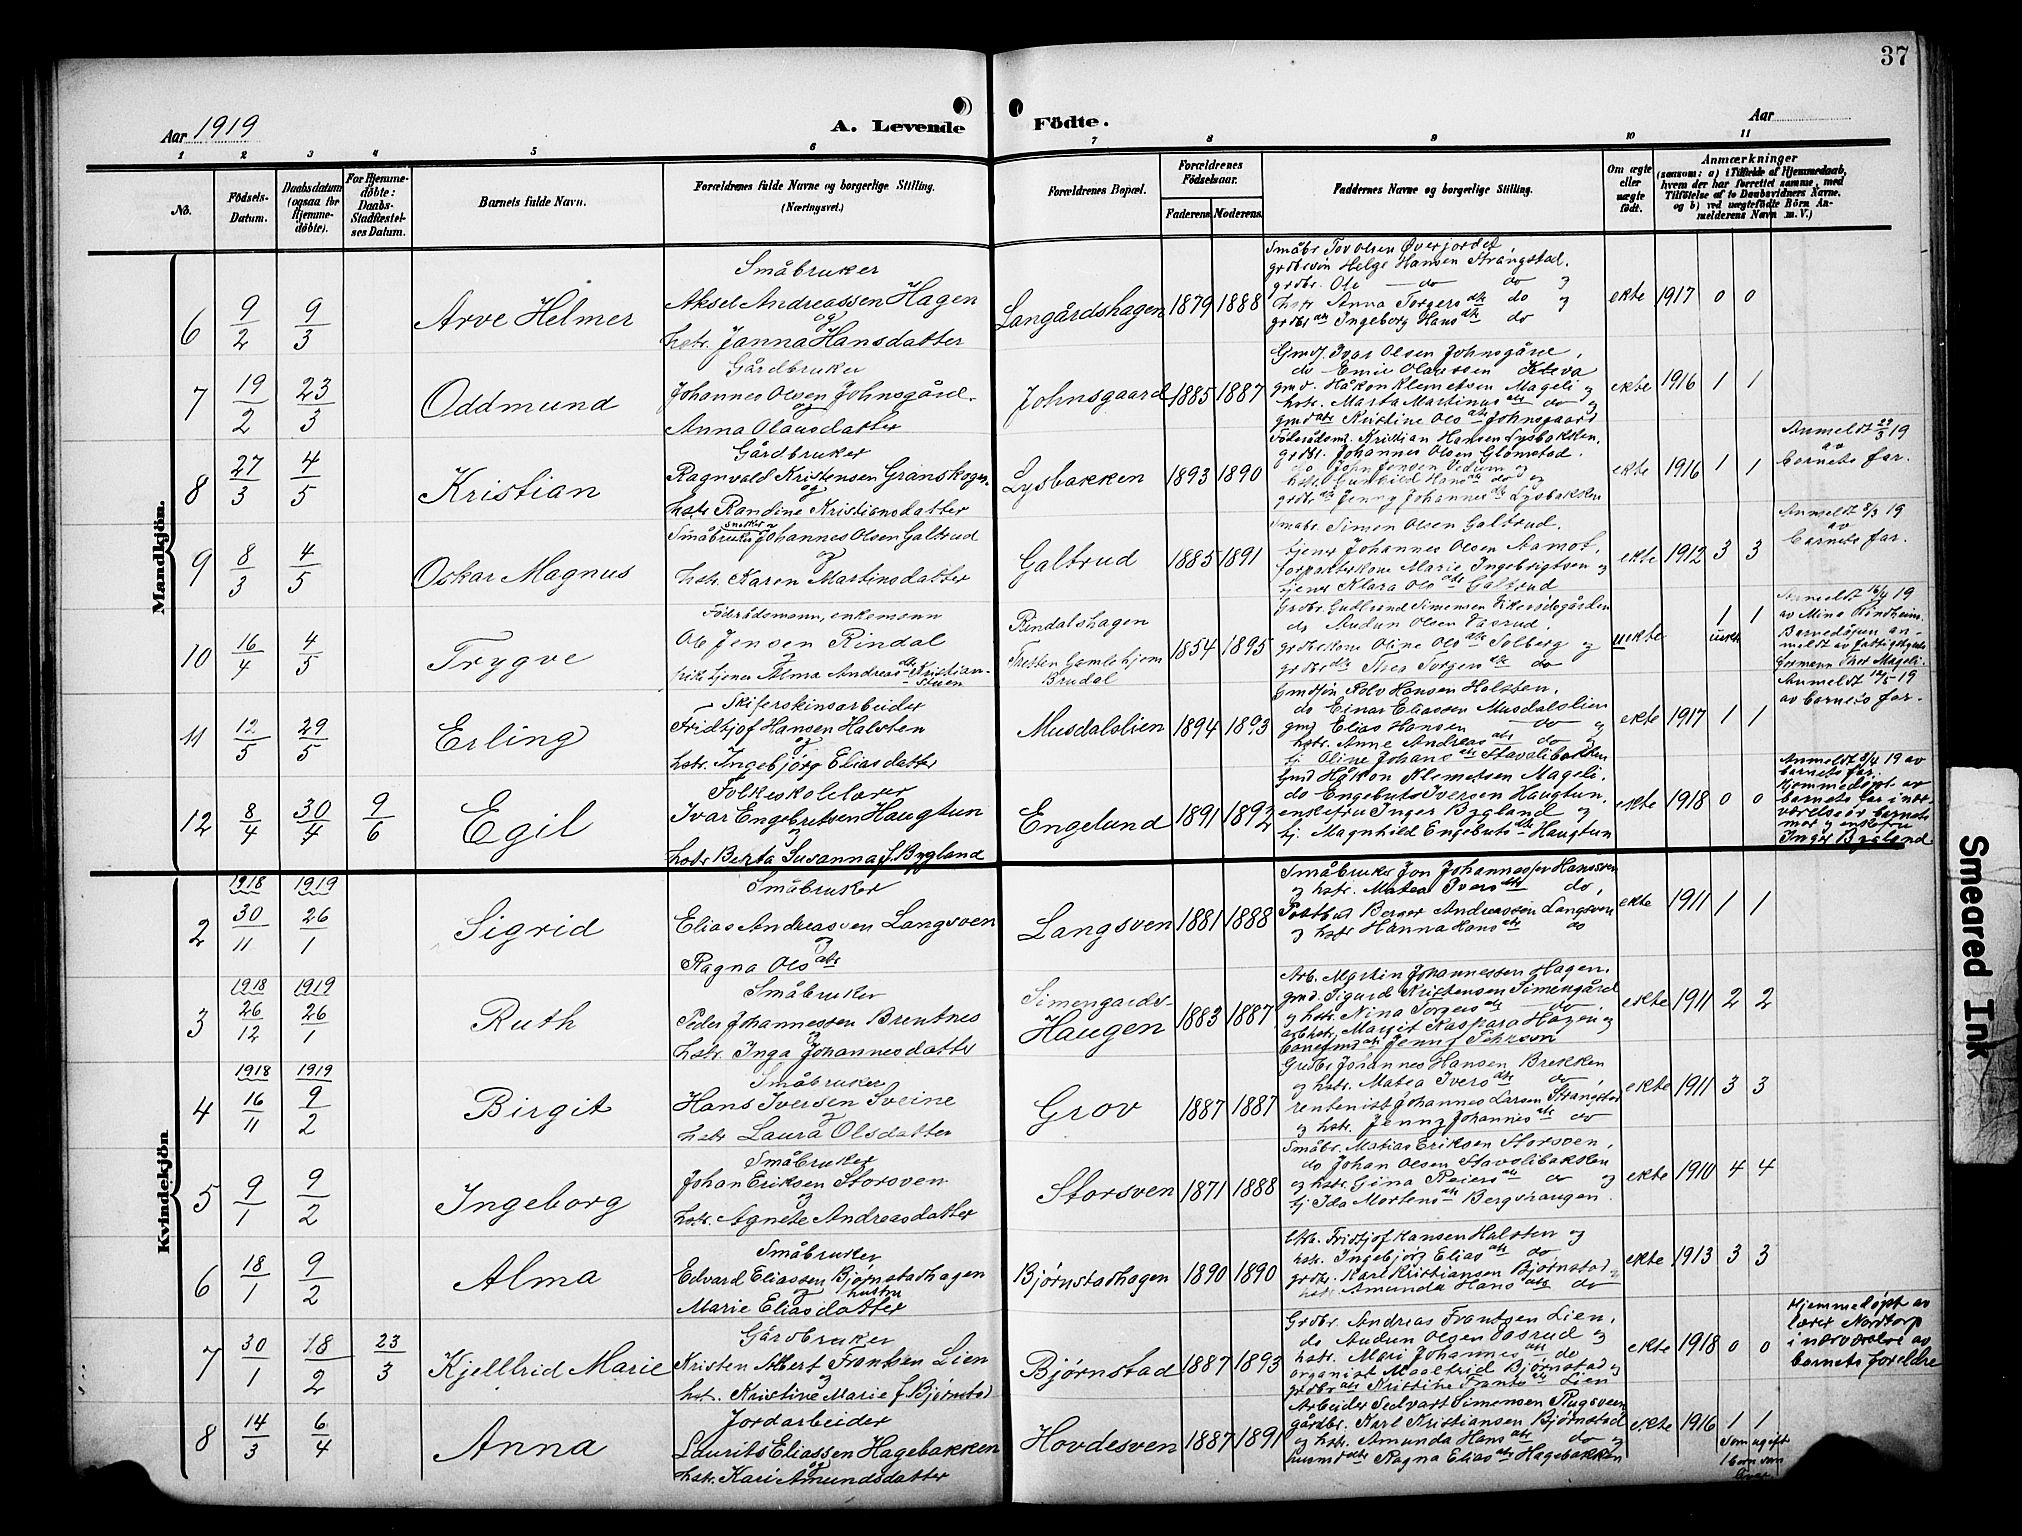 37
Aar 1919
A. Levende Födte.
Aar
1 2 3 4 5 6 7 8 9 10 11
No.
Födsels-Datum.
Daabsdatum (ogsaa for Hjemmedöbte).
For Hjemmedöbte: Daabs-Stadfæstelses Datum.
Barnets fulde Navn.
Forældrenes fulde Navne og borgerlige Stilling. (Næringsvei.)
Forældrenes Bopæl.
Forældrenes Födselsaar.
Faderens. Moderens.
Faddernes Navne og borgerlige Stilling.
Om ægte eller uægte födt.
Anmærkninger
(saasom: a) i Tilfælde af Hjemmedaab, hvem der har forrettet samme, med Tilföielse af to Daabsvidners Navne, og b) ved uægtefödte Börn Anmelderens Navn m. V.)
Mandkjön.
6 9/2 9/3 Arve Helmer
Småbruker
Aksel Andreassen Hagen
og
hstr. Janna Hansdatter
Langårdshagen 1879 1888
Småbr. Tov Olsen Øverjordet
grdbrsøn Helge Hansen Strangstad.
grdbr. Ole do og
hstr. Anna Torgers dtr do og
grdbr dtr Ingeborg Hans dtr do
ekte 1917 0 0
7 19/2 23/3 Oddmund
Gårdbruker
Johannes Olsen Johnsgård.
og
Anna Olausdatter
Johnsgaard 1885 1887
Gmdf. Ivar Olsen Johnsgård,
do Emil Olaussen
gmd. Håkon Klemetsen Mageli og
hstr. Marta Martinus dtr do og
gmd dtr Kristine Ols dtr Johnsgaard
ekte 1916 1 1
8 27/3 4/5 Kristian
Gårdbruker
Ragnvald Kristensen Granskogen.
og
hstr Randine Kristiansdatter
Lysbakken 1893 1890
Föderådsm. Kristian Hansen Lysbakken,
grdbr. Johannes Olsen Glomstad.
do John Jensen Vedum og
hstr. Gunhild Hans dtr do og
grdbr dtr Jenny Johannes dtr Lysbakken
ekte 1916 1 1
Anmeldt 23/3 19
av
barnets far.
9 8/3 4/5 Oskar Magnus
snekker og
Småbruker Johannes Olsen Galtrud
og
hstr. Karen Martinsdatter
Galtrud 1885 1891
Småbr. Simon Olsen Galtrud,
tjener Johannes Olsen Aamot,
forpakterkone Marie Ingebrigtsen og
tjener Klara Ols dtr Galtrud
ekte 1912 3 3
Anmeldt 8/3 19
av
barnets far.
10 16/4 4/5 Trygve
Föderådsmann, enkemann
Ole Jensen Rindal
og
pike tjener Alma Andreas dtr Kristianstuen
Rindalshagen
Tresten Gamlehjem
Brudal
1854 1895
Grdbr. Gudbrand Simensen
do Audun Olsen
grdbrkone Oline Ols dtr Solberg og
grdbr dtr Thea Torgers dtr do
uekte 1 1
uekte
Anmeldt 16/4 19
av Mina Rindheim.
Barnedåpen anmeldt av fattigfognd
formann Thor Mageli.
11 12/5 29/5 Erling
Skiferskinsarbeider
Fridtjof Hansen Halsten
og
hstr. Ingebjörg Eliasdatter
Musdalslien 1894 1893
Gmdsön Rolv Hansen Halsten,
do Einar Eliassen Musdalslien
gmd Elias Hansen do og
hstr. Anne Andreas dtr do og
tj Oline Johans dtr Stavslibakken
ekte 1917 1 1
Anmeldt 12/5 19
av barnets far.
12 8/4 30/4 9/6 Egil
Folkeskolelærer
Ivar Engebretsen Haugtun
og
hstr Berta Susanna f. Bygland
Engelund 1891 1892
Gmd Håkon Klemetsen Mageli,
do Engebret Iversen Haugtun,
enkefru Inger Bygland og
tj. Magnhild Engebrets dtr Haugtun
ekte 1918 0 0
Anmeldt 8/4 19 av
barnets far.
Hjemmedøpt av
barnets far i nærværelse av barnets
mor og enkefru
Inger Bygland
Kvindekjön
2 1918 30/11 1919 26/1 Sigrid
Småbruker
Elias Andreassen Langsven
og
Ragna Ols dtr
Langsven 1881 1888
Småbruker Jon Johannessen Hanssven
og hstr. Matea Ivers dtr do,
Postbud Berger Andreassen Langsven
og hstr Hanna Hans dtr do
ekte 1911 1 1
3 1918 26/12 1919 26/1 Ruth
Småbruker
Peder Johannessen Brentnes
og
hstr. Inga Johannesdatter
Simengaards
Haugen
1883 1887
Arb. Martin Johannessen Hagen,
gmd. Sigurd Kristensen Simengård
og hstr. Nina Torgers dtr do
arbhstr. Margit Kaspara Hagen og
Jenny Pehrson
ekte 1911 2 2
4 1918 16/11 1919 9/2 Birgit
Småbruker
Hans Iversen Sveine
og
hstr Laura Olsdatter
Grov 1887 1887
Grdbr Johannes Hansen Brekken
og hstr. Matea Ivers dtr do,
rentenist Johannes Larsen Strangstad
og hstr. Jenny Johannes dtr do
ekte 1911 3 3
5 9/1 9/2 Ingeborg
Småbruker
Johan Eriksen Storsven
og
hstr. Agnete Andreasdatter
Storsven 1871 1888
Småbr. Matias Eriksen Storsven,
do Johan Olsen Stavslibakken
og hstr. Gina Reiers dtr do og
tj Ida Mortens dtr Bergshaugen.
ekte 1910 4 4
6 18/1 9/2 Alma
Småbruker
Edvard Eliassen Bjørnstadhagen
og hustru
Marie Eliasdatter
Bjørnstadhagen 1890 1890
Fridtjof Hansen Halsten og
hstr. Ingebjörg Elias dtr do
grdbr. Karl Kristiansen Bjørnstad og
hstr. Amunda Hans dtr do
ekte 1913 3 3
7 30/1 18/2 23/3 Kjellfrid Marie
Gårdbruker
Kristen Albert Frantsen Lien
og
hstr. Kristine Marie f. Bjørnstad
Bjørnstad 1887 1893
Grdbr. Andreas Frantsen Lien,
do Audun Olsen Aasrud og
hstr. Mari Johannes dtr do
organist Maaltrid Bjørnstad og
grdbr dtr Kristine Frants dtr Lien
ekte 1918 0 0
Hjemmedøpt av
lærer Nordtorp
i nærværelse av
barnets foreldre
8 14/3 6/4 Anna
Jordarbeider
Laurits Eliassen Hagebakken
og
hstr. Kari Amundsdatter
Hovdesven 1887 1891
Arbeider Sedvart Simensen Rugsveen
gårdbr. Karl Kristiansen Bjørnstad
og hstr. Amunda Hans dtr do og
husmd dtr Ragna Elias dtr Hagebakken
ekte 1916 1 1
Som ugift
1 barn som
lever.
Smeared Ink